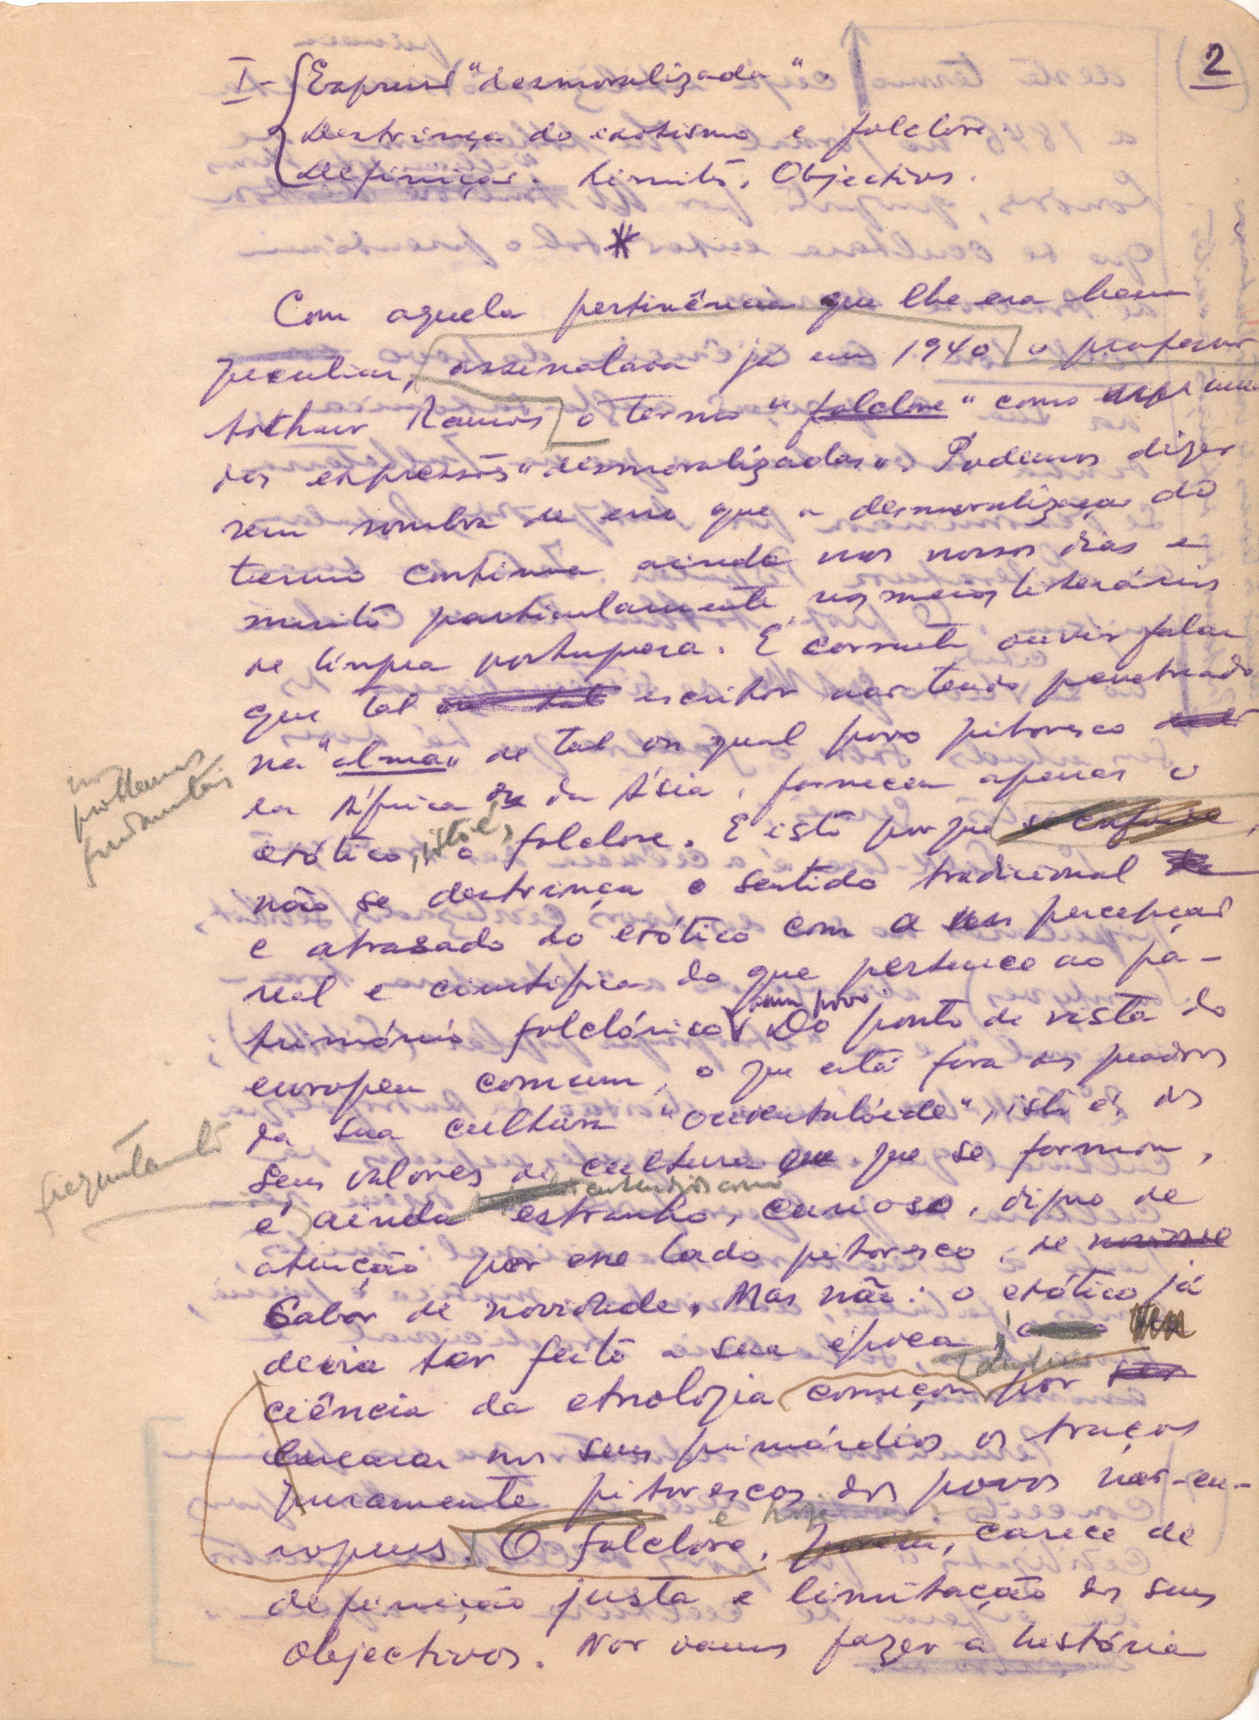 2
I - Expressão "desmoralizada"
Destrinça do exotismo e folclore.
Definição. Limites. Objectivos.
*
Com aquela pertinência que lhe era bem
peculiar, assinalava já em 1940 o professor
Arthur Ramos o termo "folclore" como uma
das expressões "desmoralizadas". Podemos dizer
sem sombra de erro que a desmoralização do
termo continua ainda nos nossos dias e
muito particularmente nos meios literários
de língua portuguesa. É corrente ouvir falar
que tal escritor não tendo penetrado
na "alma" de tal ou qual povo pitoresco
nos problemas fundamentais
da África ou da Ásia, forneceu apenas o
exótico, isto é, o folclore. E isto porque
não se destrinça o sentido tradicional
e atrasado do exótico com a percepção
real e científica do que pertence ao pa-
trimónio folclórico dum povo. Do ponto de vista do
europeu comum, o que está fora dos quadros
da sua cultura "ocidentalóide", isto é, dos
seus valores de cultura que se formou,
frequentante
é ainda estranho, curioso, digno de
atenção por esse lado pitoresco, de
sabor de novidade. Mas não: o exótico já
devia ter feito a sua época
ciência da etnologia começou por
buscar nos seus primórdios os traços
puramente pitorescos dos povos não-eu-
ropeus. O folclore, carece de
definição justa e limitação dos seus
objectivos. Não vamos fazer a história